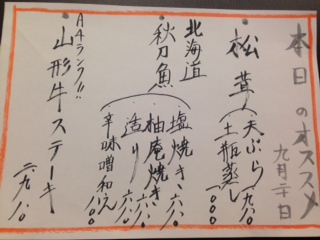 本日のオススメ
九月二十日
松茸
天ぷら 一九八〇
土瓶蒸し 一八〇〇
北海道
秋刀魚
塩焼き 六八〇
柚庵焼き 六八〇
造り 六八〇
辛味噌和え 八〇〇
A4ランク!!
山形牛ステーキ 二九八〇